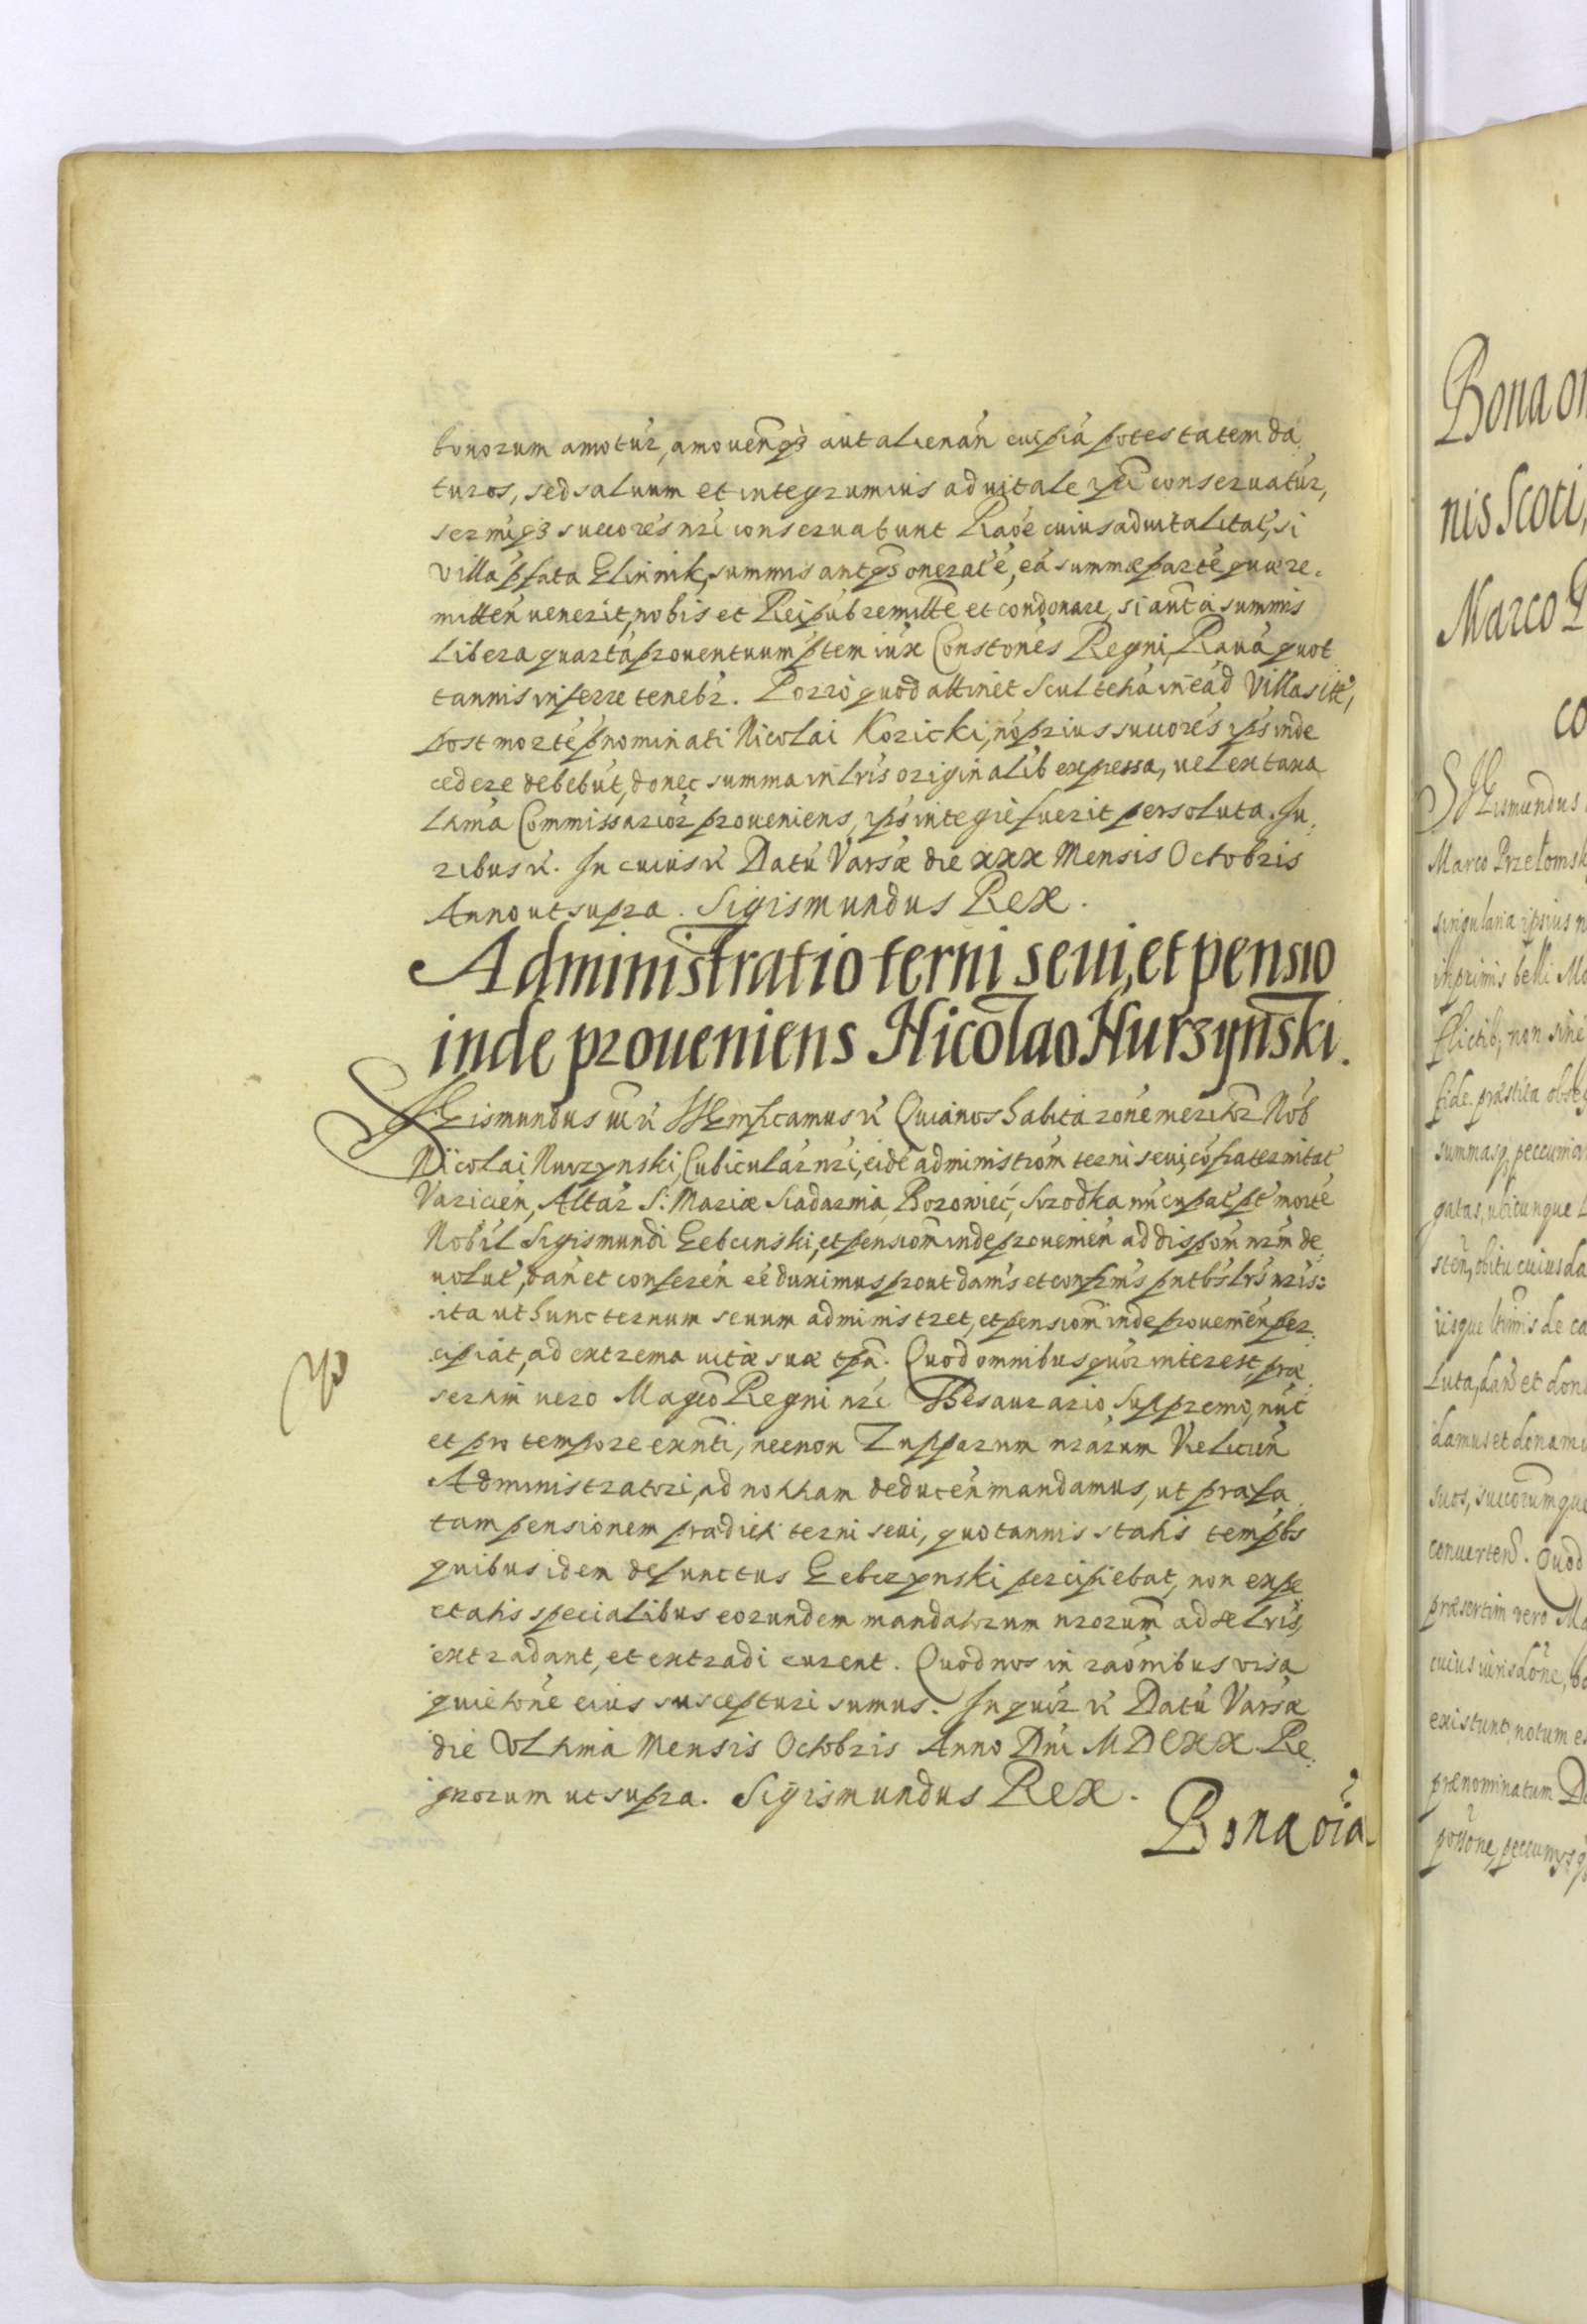 bonorum amotur, amovenq3 aut alienan cuipia potestatem da
turos, sed saluum et integrum ius aduitale ipi conseruatur,
sermiq3 succores nri conseruabunt Raoe cuius aduitalitat, si
villa pfata Glinnik, summis antq3 onerate, ea summæ parte quæ re
mitten uenerit, nobis et Reipub remitte et condonare, si aut a summis
libera quarta prouentuum ptem iux Constones Regni, Raua quot
tannis inferre tenebr. Porro quod attinet Scultetia in ead Villa sit,
post morte pnominati Nicolai Kozicki, no prius succores ips inde
cedere debebut, donec summa in lris originalib expressa, uel ex taxa
ltima Commissarior proueniens, ips integre fuerit persoluta. Ju
ribus &. In cuius & Datu Varsæ die xxx Mensis Octobris
Anno ut supra. Sigismundus Rex.
Administratio terni seui, et pensio
inde proueniens Nicolao Nurzynski.
SIGismundus III & SIGnificamus & Quia nos habita rone meritor Nob
Nicolai Nurzynski, Cubicular nri, eide administrom terni seui, cofraternitat
Varicien, Altar S: Mariæ Siadarnia, Borowiec, Srzodka nucupat pt morte
Nobil Sigismundi Gebcinski, et pensiom inde prouenien ad dispom nram de
uolut, dan et conferen ee duximus prout dams et confrms pntbs lrs nris:
ita ut hunc ternum seuum administret, et pensiom inde prouenien per
cipiat, ad extrema uitæ suæ tpa. Quod omnibus quor interest, præ
sertim uero Magco Regni nri Thesaurario Supremo, nuc
et pro tempore exnti, necnon Zupparum nrarum Vielicien
Administratori, ad notitiam deducen mandamus, ut præfa
tam pensionem prædict terni seui, quotannis statis tempbs
quibus idem defunctus Gebczynski percipiebat, non expe
ctatis specialibus eorundem mandatorum nrorum ad se lris,
extradant, et extradi curent. Quod nos in raonibus visa
quietone eius suscepturi sumus. In quor & Datu Varsæ
die Vltima Mensis Octobris Anno Dni MDCXX Re
gnorum ut supra. Sigismundus Rex.
Bona oia
Bona o
nis Scoti,
Marco
co
SIGismundus
Marco Przełomsk
singularia ipsius
inprimis belli Mo
flictib, non sine
fide præstita obse
summasq peccunia
gatas, ubicunque
sten, obitu cuiusda
iisque ltimis de ca
luta, dan et don
damus et donam
suos, succorumque
conuerten. Quod
præsertim vero Ma
cuius iurisdone, bo
existunt, notum e
prænominatum D
possone, peccunys q